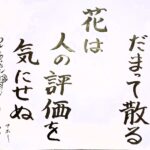 だまって散る
花は
人の評価を
気にせぬ